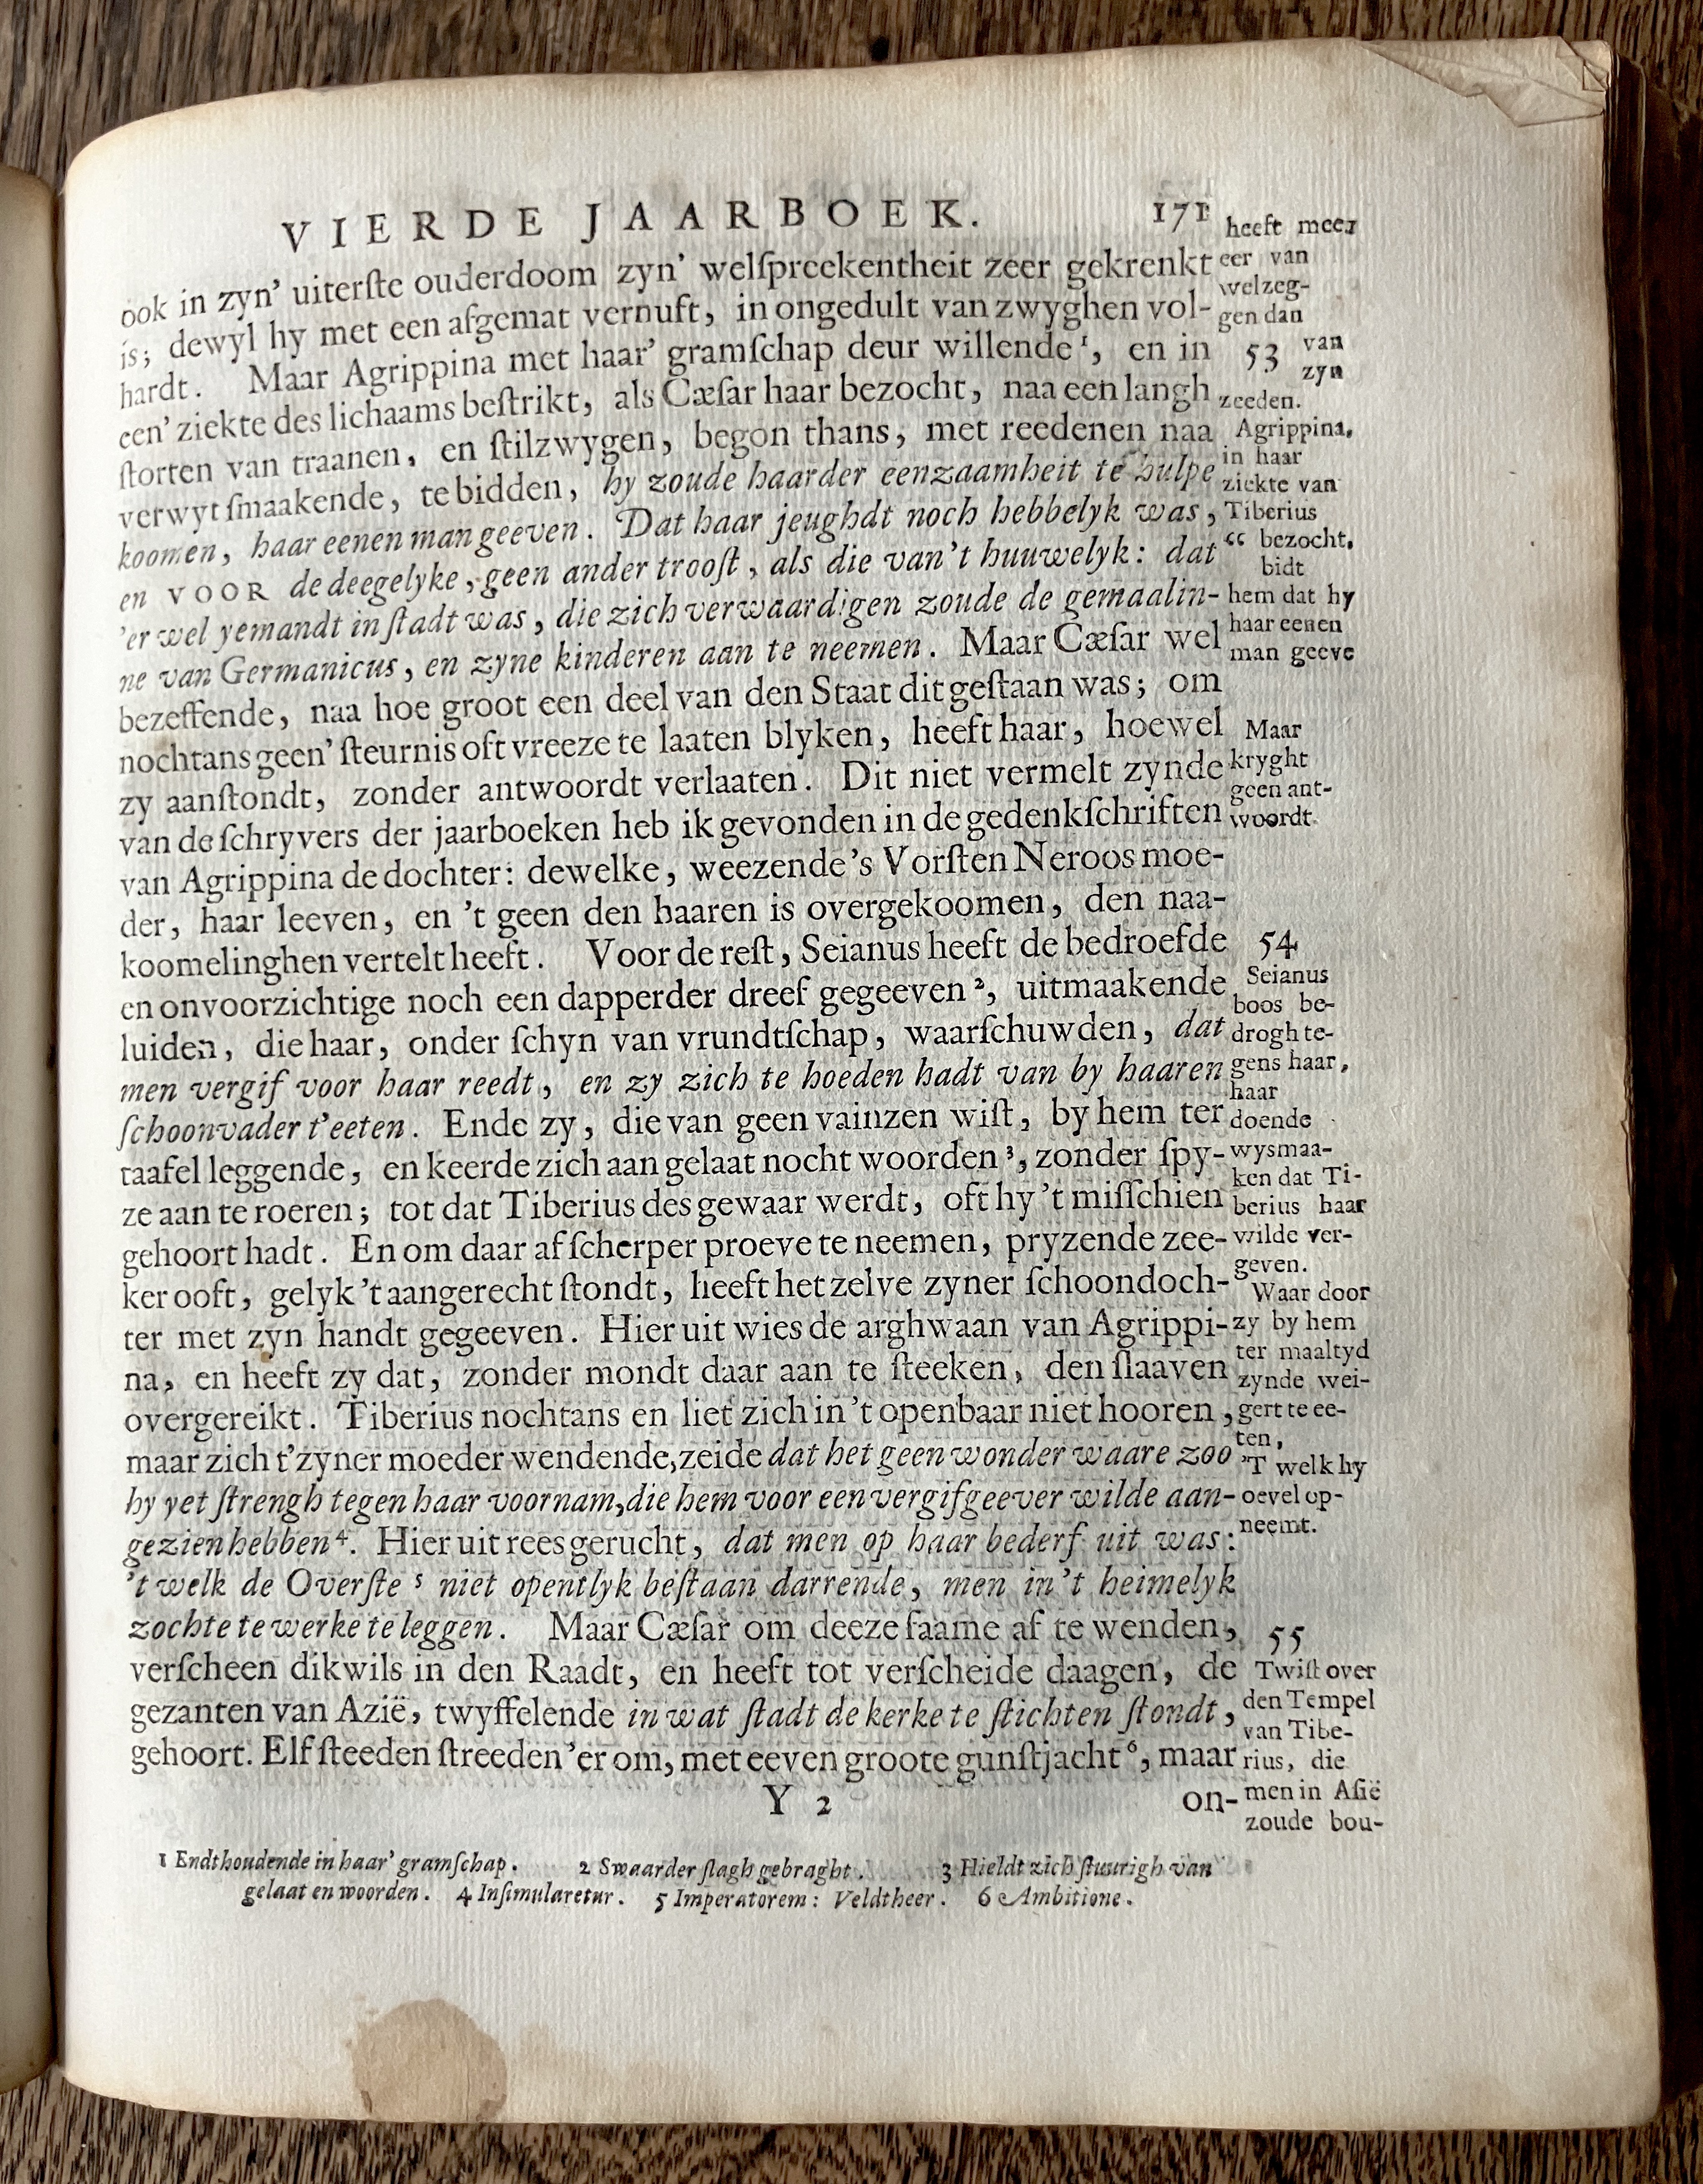 VIERDE JAARBOEK. 171
ook in zyn' uiterſte ouderdoom zyn' welſpreekentheit zeer gekrenkt
is; dewyl hy met een afgemat vernuft, in ongedult van zwyghen vol-
hardt. Maar Agrippina met haar' gramſchap deur willende¹, en in
een' ziekte des lichaams beſtrikt, als Cæſar haar bezocht, naa een langh
ſtorten van traanen, en ſtilzwygen, begon thans, met reedenen naa
verwyt ſmaakende, te bidden, hy zoude haarder eenzaamheit te hulpe
koomen, haar eenen man geeven. Dat haar jeughdt noch hebbelyk was,
en VOOR de deegelyke, geen ander trooſt, als die van't huuwelyk: dat “
'er wel yemandt in ſtadt was, die zich verwaardigen zoude de gemaalin-
ne van Germanicus, en zyne kinderen aan te neemen. Maar Cæſar wel
bezeffende, naa hoe groot een deel van den Staat dit geſtaan was; om
nochtans geen' ſteurnis oft vreeze te laaten blyken, heeft haar, hoewel
zy aanſtondt, zonder antwoordt verlaaten. Dit niet vermelt zynde
van de ſchryvers der jaarboeken heb ik gevonden in de gedenkſchriften
van Agrippina de dochter: dewelke, weezende 's Vorſten Neroos moe-
der, haar leeven, en 't geen den haaren is overgekoomen, den naa-
koomelinghen vertelt heeft. Voor de reſt, Seianus heeft de bedroefde
en onvoorzichtige noch een dapperder dreef gegeeven², uitmaakende
luiden, die haar, onder ſchyn van vrundtſchap, waarſchuwden, dat
men vergif voor haar reedt, en zy zich te hoeden hadt van by haaren
ſchoonvader t'eeten. Ende zy, die van geen vainzen wiſt, by hem ter
taafel leggende, en keerde zich aan gelaat nocht woorden³, zonder ſpy-
ze aan te roeren; tot dat Tiberius des gewaar werdt, oft hy 't miſſchien
gehoort hadt. En om daar af ſcherper proeve te neemen, pryzende zee-
ker ooft, gelyk 't aangerecht ſtondt, heeft het zelve zyner ſchoondoch-
ter met zyn handt gegeeven. Hier uit wies de arghwaan van Agrippi-
na, en heeft zy dat, zonder mondt daar aan te ſteeken, den ſlaaven
overgereikt. Tiberius nochtans en liet zich in 't openbaar niet hooren,
maar zich t'zyner moeder wendende, zeide dat het geen wonder waare zoo
hy yet ſtrengh tegen haar voornam, die hem voor een vergifgeever wilde aan-
gezien hebben⁴. Hier uit rees gerucht, dat men op haar bederf uit was:
't welk de Overſte ⁵ niet opentlyk beſtaan darrende, men in't heimelyk
zochte te werke te leggen. Maar Cæſar om deeze faame af te wenden,
verſcheen dikwils in den Raadt, en heeft tot verſcheide daagen, de
gezanten van Azië, twyffelende in wat ſtadt de kerke te ſtichten ſtondt,
gehoort. Elf ſteeden ſtreeden 'er om, met eeven groote gunſtjacht⁶, maar
Y 2 on-
heeft meer
eer van
welzeg-
gen dan
53 van
zyn
zeeden.
Agrippina,
in haar
ziekte van
Tiberius
bezocht,
bidt
hem dat hy
haar eenen
man geeve
Maar
kryght
geen ant-
woordt.
54
Seianus
boos be-
drogh te-
gens haar,
haar
doende
wysmaa-
ken dat Ti-
berius haar
wilde ver-
geven.
Waar door
zy by hem
ter maaltyd
zynde wei-
gert te ee-
ten,
'T welk hy
oevel op-
neemt.
55
Twiſt over
den Tempel
van Tibe-
rius, die
men in Aſië
zoude bou-
1 Endthoudende in haar' gramſchap. 2 Swaarder ſlagh gebraght. 3 Hieldt zich ſtuurigh van
gelaat en woorden. 4 Inſimularetur. 5 Imperatorem: Veldtheer. 6 Ambitione.